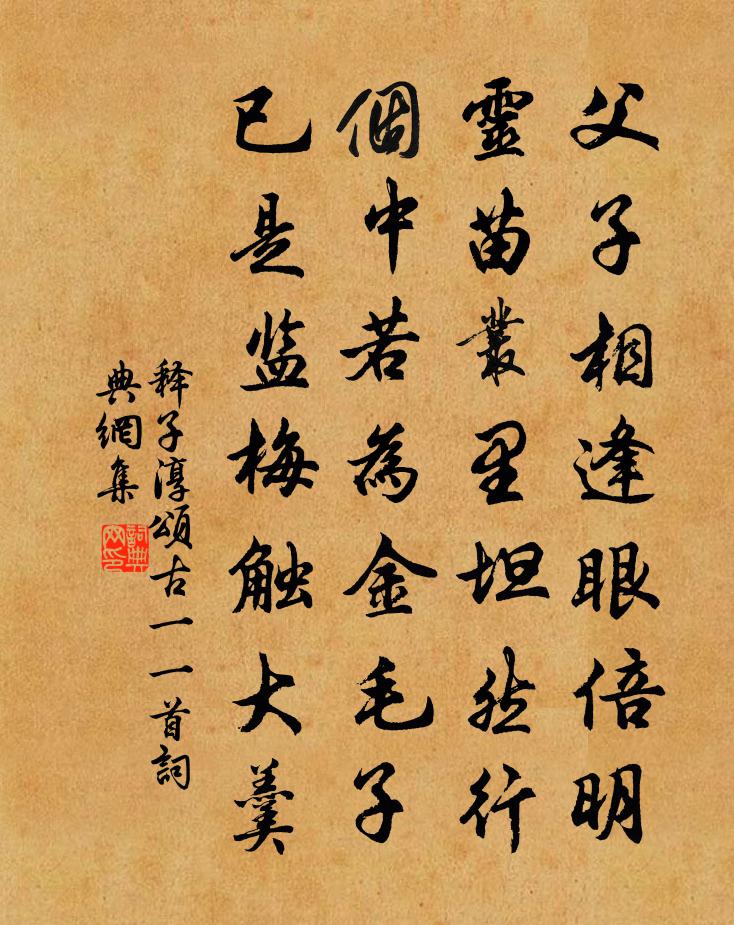 父子相逢眼倍明
靈苗叢里坦然行
個中若為金毛子
已是监梅触大羹
释子淳頌古一一首詞
典網集
詞典
网印